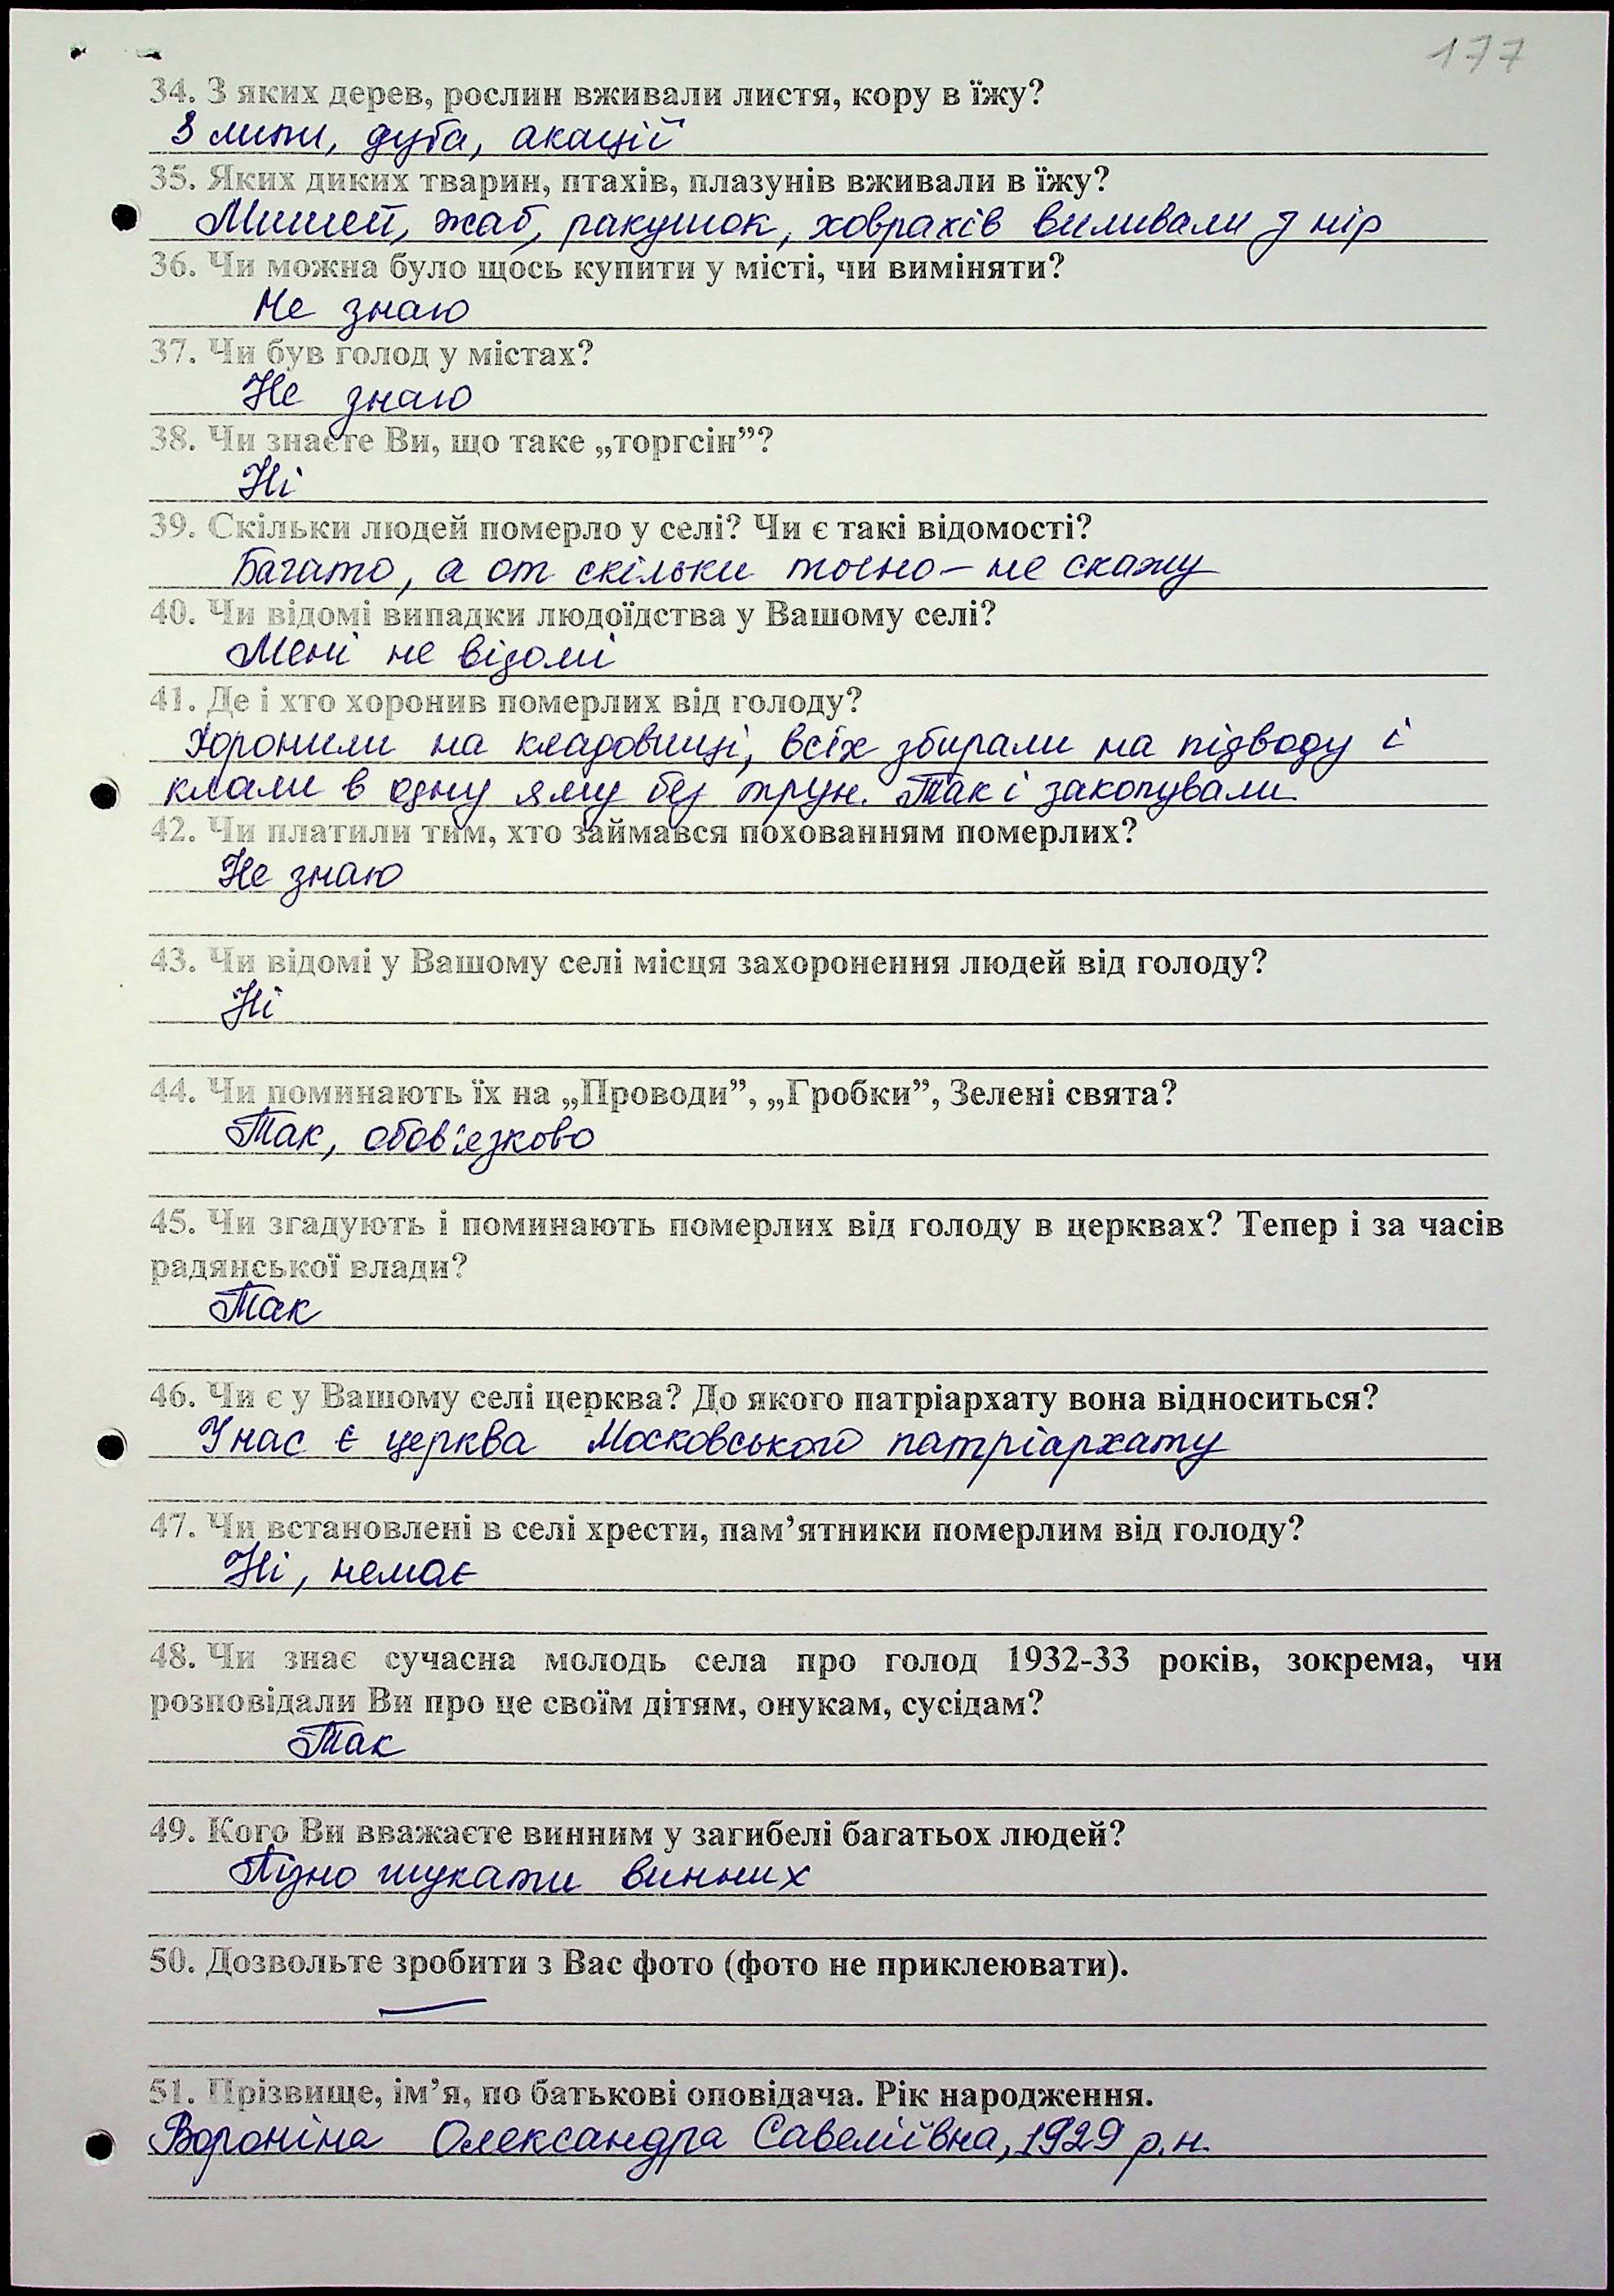 177
34. З яких дерев, рослин вживали листя, кору в їжу?
З липи, дуба, акації
35. Яких диких тварин, птахів, плазунів вживали в їжу?
Мишей, жаб, ракушок, ховрахів виливали з нір
36. Чи можна було щось купити у місті, чи виміняти?
Не знаю
37. Чи був голод у містах?
Не знаю
38. Чи знаєте Ви, що таке „торгсін”?
Ні
39. Скільки людей померло у селі? Чи є такі відомості?
Багато, а от скільки точно – не скажу
40. Чи відомі випадки людоїдства у Вашому селі?
Мені не відомі
41. Де і хто хоронив померлих від голоду?
Хоронили на кладовищі, всіх збирали на підводу і
клали в одну яму без трун. Так і закопували
42. Чи платили тим, хто займався похованням померлих?
Не знаю
43. Чи відомі у Вашому селі місця захоронення людей від голоду?
Ні
44. Чи поминають їх на „Проводи”, „Гробки”, Зелені свята?
Так, обов'язково
45. Чи згадують і поминають померлих від голоду в церквах? Тепер і за часів
радянської влади?
Так
46. Чи є у Вашому селі церква? До якого патріархату вона відноситься?
У нас є церква Московського патріархату
47. Чи встановлені в селі хрести, пам’ятники померлим від голоду?
Ні, немає
48. Чи знає сучасна молодь села про голод 1932-33 років, зокрема, чи
розповідали Ви про це своїм дітям, онукам, сусідам?
Так
49. Кого Ви вважаєте винним у загибелі багатьох людей?
Пізно шукати винних
50. Дозвольте зробити з Вас фото (фото не приклеювати).
—
51. Прізвище, ім’я, по батькові оповідача. Рік народження.
Вороніна Олександра Савеліївна, 1929 р.н.